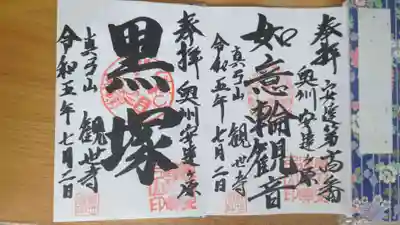 奉拝
奥州安達ヶ原
如意輪観音
真弓山 観世寺
令和五年七月二日
奉拝
奥州安達ヶ原
黒塚
真弓山
観世寺
令和五年七月二日